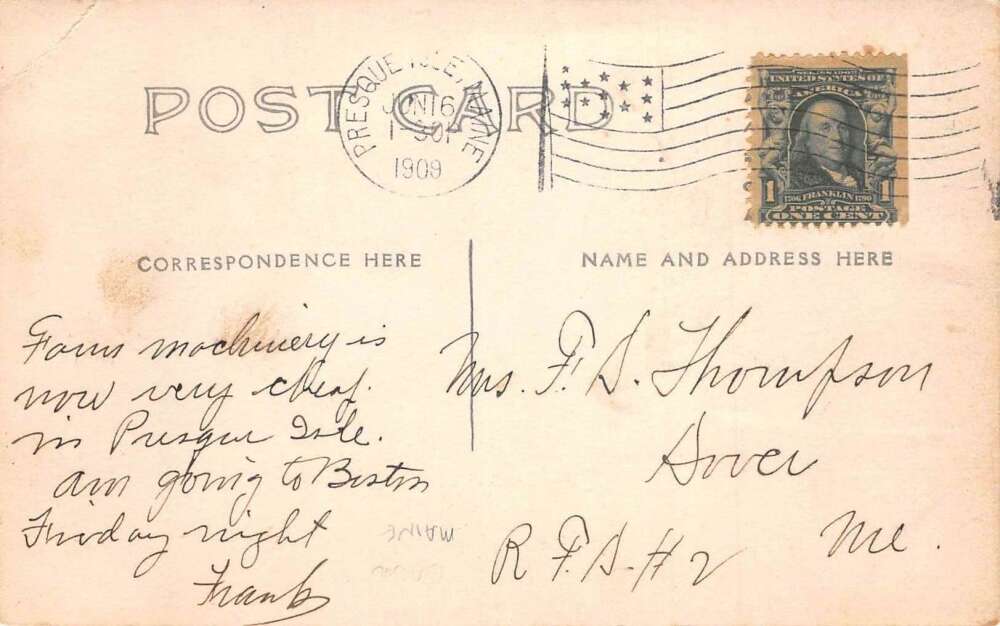 POST CARD
PRESQUE ISLE, MAINE
JUN 16
1909
SERIES 1902
UNITED STATES OF
AMERICA
1 1
1706 FRANKLIN 1790
POSTAGE
ONE CENT
CORRESPONDENCE HERE
NAME AND ADDRESS HERE
Farm machinery is
now very cheap.
in Presque Isle.
am going to Boston
Friday night
Frank
Mrs. F. D. Thompson
Dover
Me.
R. F. D. #2
MAINE